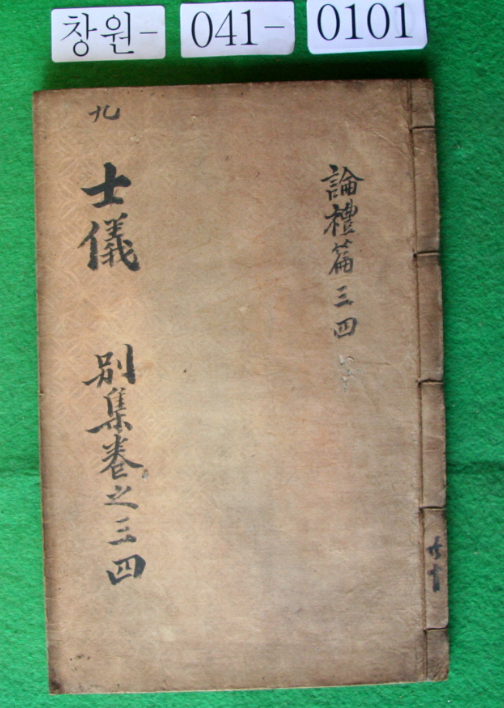 창원-
041-
0101
論禮篇三四
九
士儀
別集卷之三四